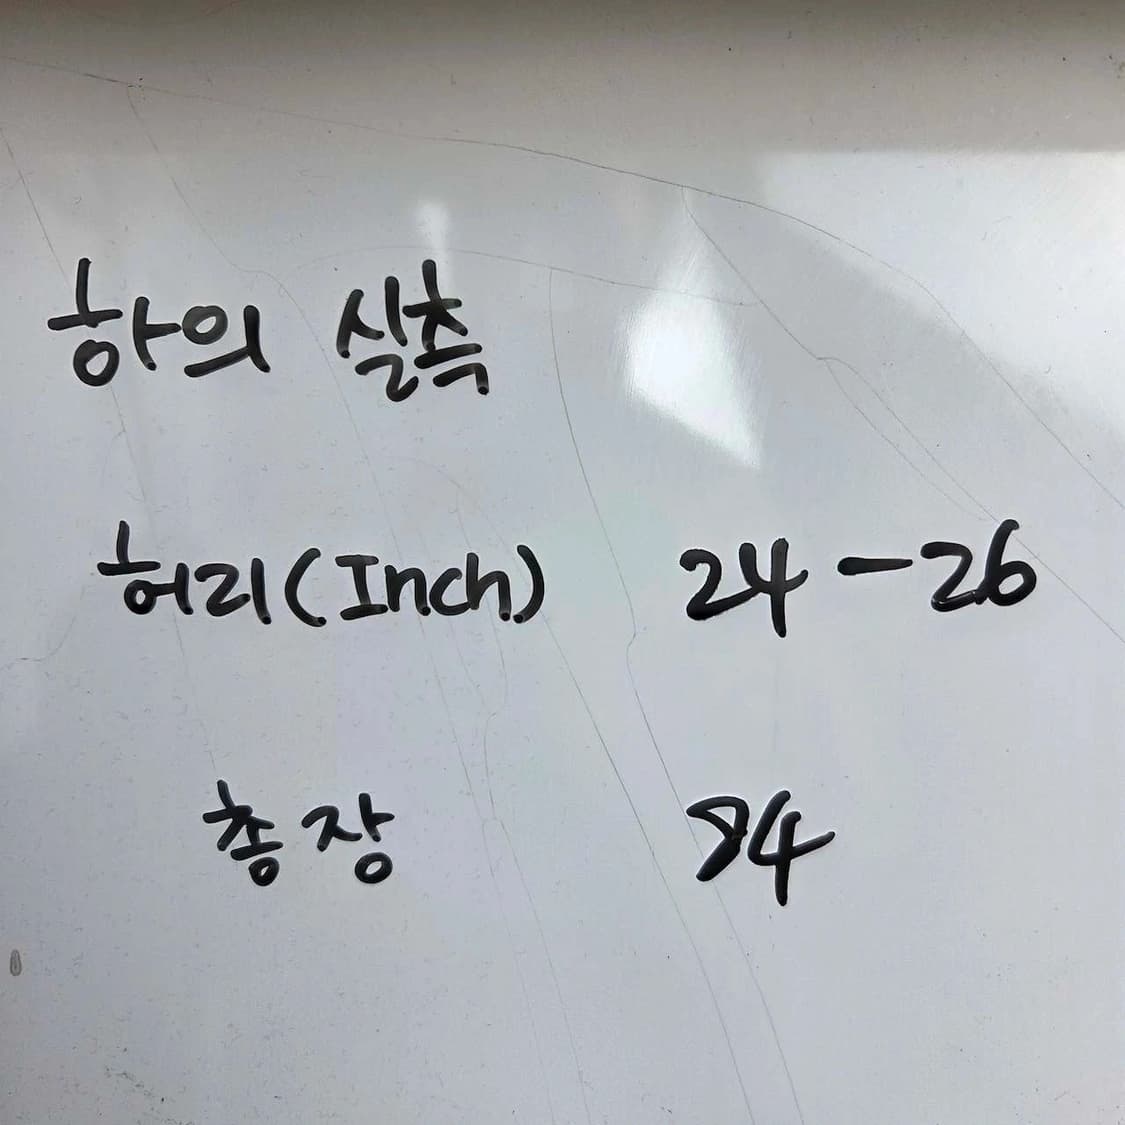 하의 실측
허리(Inch) 24-26
총장 84